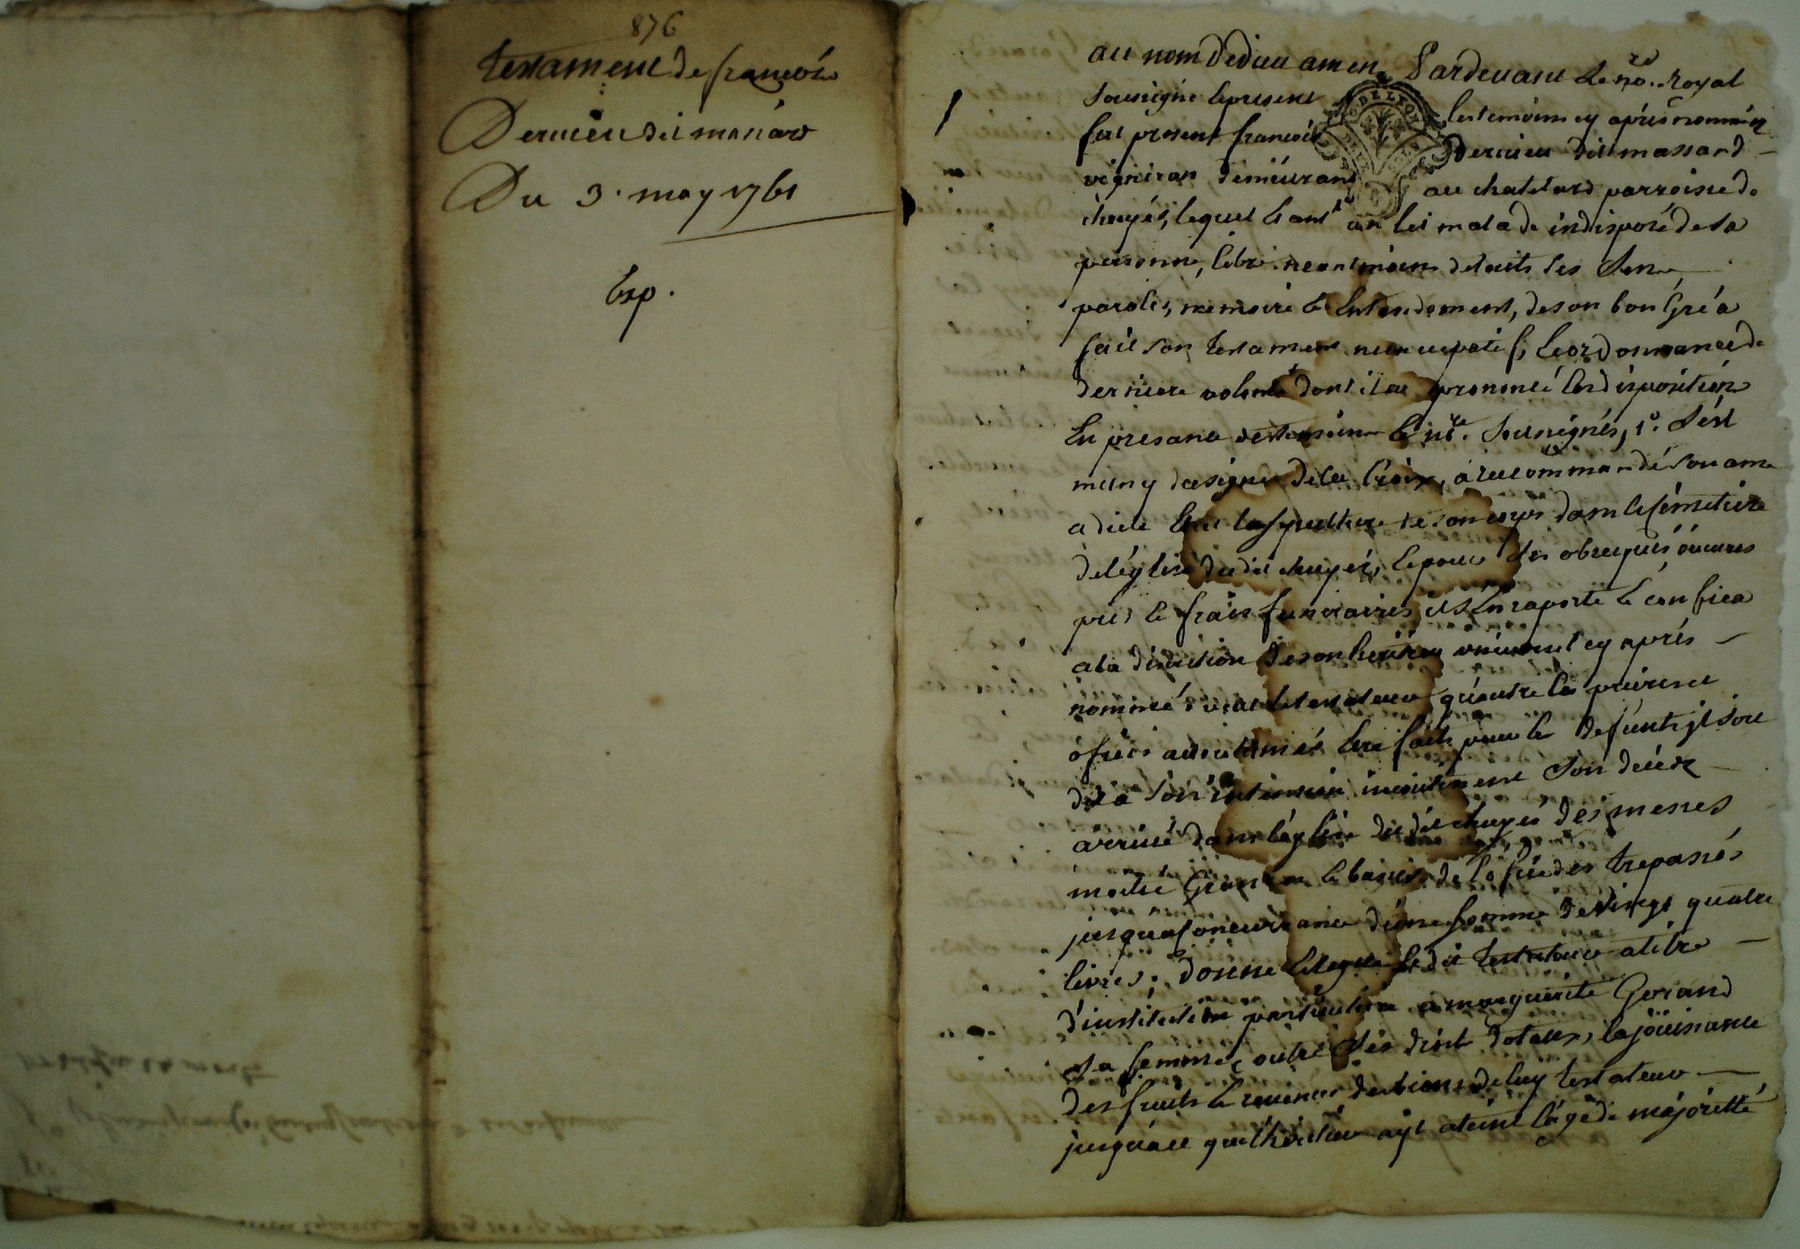 876
testament de francois
Dervieu dit massard
Du 3. may 1761
Exp.
au nom de dieu amen, Pardevant le no.re Royal
soussigné le present
les temoins cy apres nommés
fut present francois
Dervieu dit massard
vigniron demeurant
au chatelard parroisse de
chuyés, lequel etant
un lit malade indisposé de sa
personne, libre neantmoins de touts ses sens
parolles, memoire et Entendement, de son bon Gré a
fait son testament nuncupatif, et ordonnance de
derniere volonté dont il a prononcé les dispositions
En presance des temoins et no.re soussignés, 1°. s'est
muny du signe de la Croix, a recommandé son ame
a dieu Elu la sepulture de son corps dans le Cemetiere
de l'église du dit chuyés, et pour ses obseques, oeuvres
pies et frais funeraires il s'en raporte et confiea
a la discrétion de son heritier universel cy après
nommé; veut le testateur qu'outre les prieres et
offices accoutumés etre faits pour les defunts, il soit
dit a son intention incontinent son décès
arrivé dans léglise du dit chuyés des messes
moitié Grandes et basses de loffice des trepassés
jusqua Concurrance d'une somme de vingt quatre
livres; donne et legue le dit testateur a titre
d'institution particuliere a marguerite Gerand
sa femme, outre ses droits dotaux, la joüissance
des fruits et revenus des biens de luy testateur
jusqu'a ce que l'héritier ayt ateint l'âge de majorité